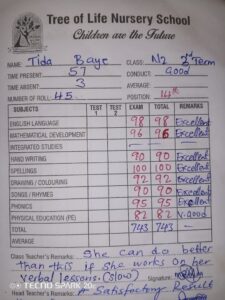 Tree of Life Nursery School
Children are the Future
NAME: Tida Baye CLASS: N2 2nd Term
TIME PRESENT: 57 CONDUCT: Good
TIME ABSENT: 3 AVERAGE:
NUMBER OF ROLL: 45 POSITION: 14th
SUBJECTS TEST 1 TEST 2 EXAM TOTAL REMARKS
ENGLISH LANGUAGE 98 98 Excellent
MATHEMATICAL DEVELOPMENT 96 96 Excellent
INTEGRATED STUDIES — — —
HAND WRITING 90 90 Excellent
SPELLINGS 100 100 Excellent
DRAWING / COLOURING 92 92 Excellent
SONGS / RHYMES 90 90 Excellent
PHONICS 95 95 Excellent
PHYSICAL EDUCATION (PE) 82 82 V.Good
TOTAL 743 743 —
AVERAGE
Class Teacher's Remarks: She can do better
than this if she works on her
verbal lessons. (slow) Signature:
Head Teacher's Remarks: A Satisfactory Result
TECNO SPARK 20